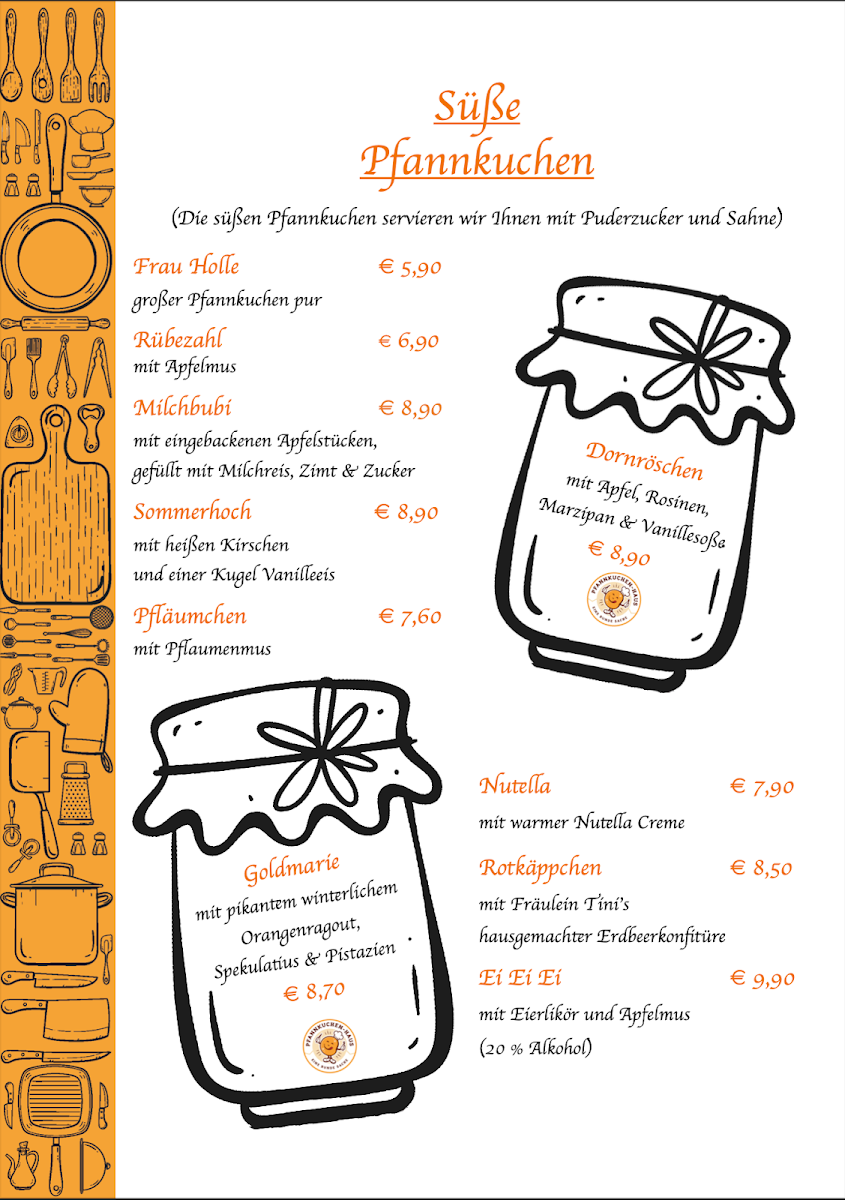 Süße
Pfannkuchen
(Die süßen Pfannkuchen servieren wir Ihnen mit Puderzucker und Sahne)
Frau Holle € 5,90
großer Pfannkuchen pur
Rübezahl € 6,90
mit Apfelmus
Milchbubi € 8,90
mit eingebackenen Apfelstücken,
gefüllt mit Milchreis, Zimt & Zucker
Sommerhoch € 8,90
mit heißen Kirschen
und einer Kugel Vanilleeis
Pfläumchen € 7,60
mit Pflaumenmus
Dornröschen
mit Apfel, Rosinen,
Marzipan & Vanillesoße
€ 8,90
PFANNKUCHEN-HAUS
EINE RUNDE SACHE
Goldmarie
mit pikantem winterlichem
Orangenragout,
Spekulatius & Pistazien
€ 8,70
PFANNKUCHEN-HAUS
EINE RUNDE SACHE
Nutella € 7,90
mit warmer Nutella Creme
Rotkäppchen € 8,50
mit Fräulein Tini's
hausgemachter Erdbeerkonfitüre
Ei Ei Ei € 9,90
mit Eierlikör und Apfelmus
(20 % Alkohol)